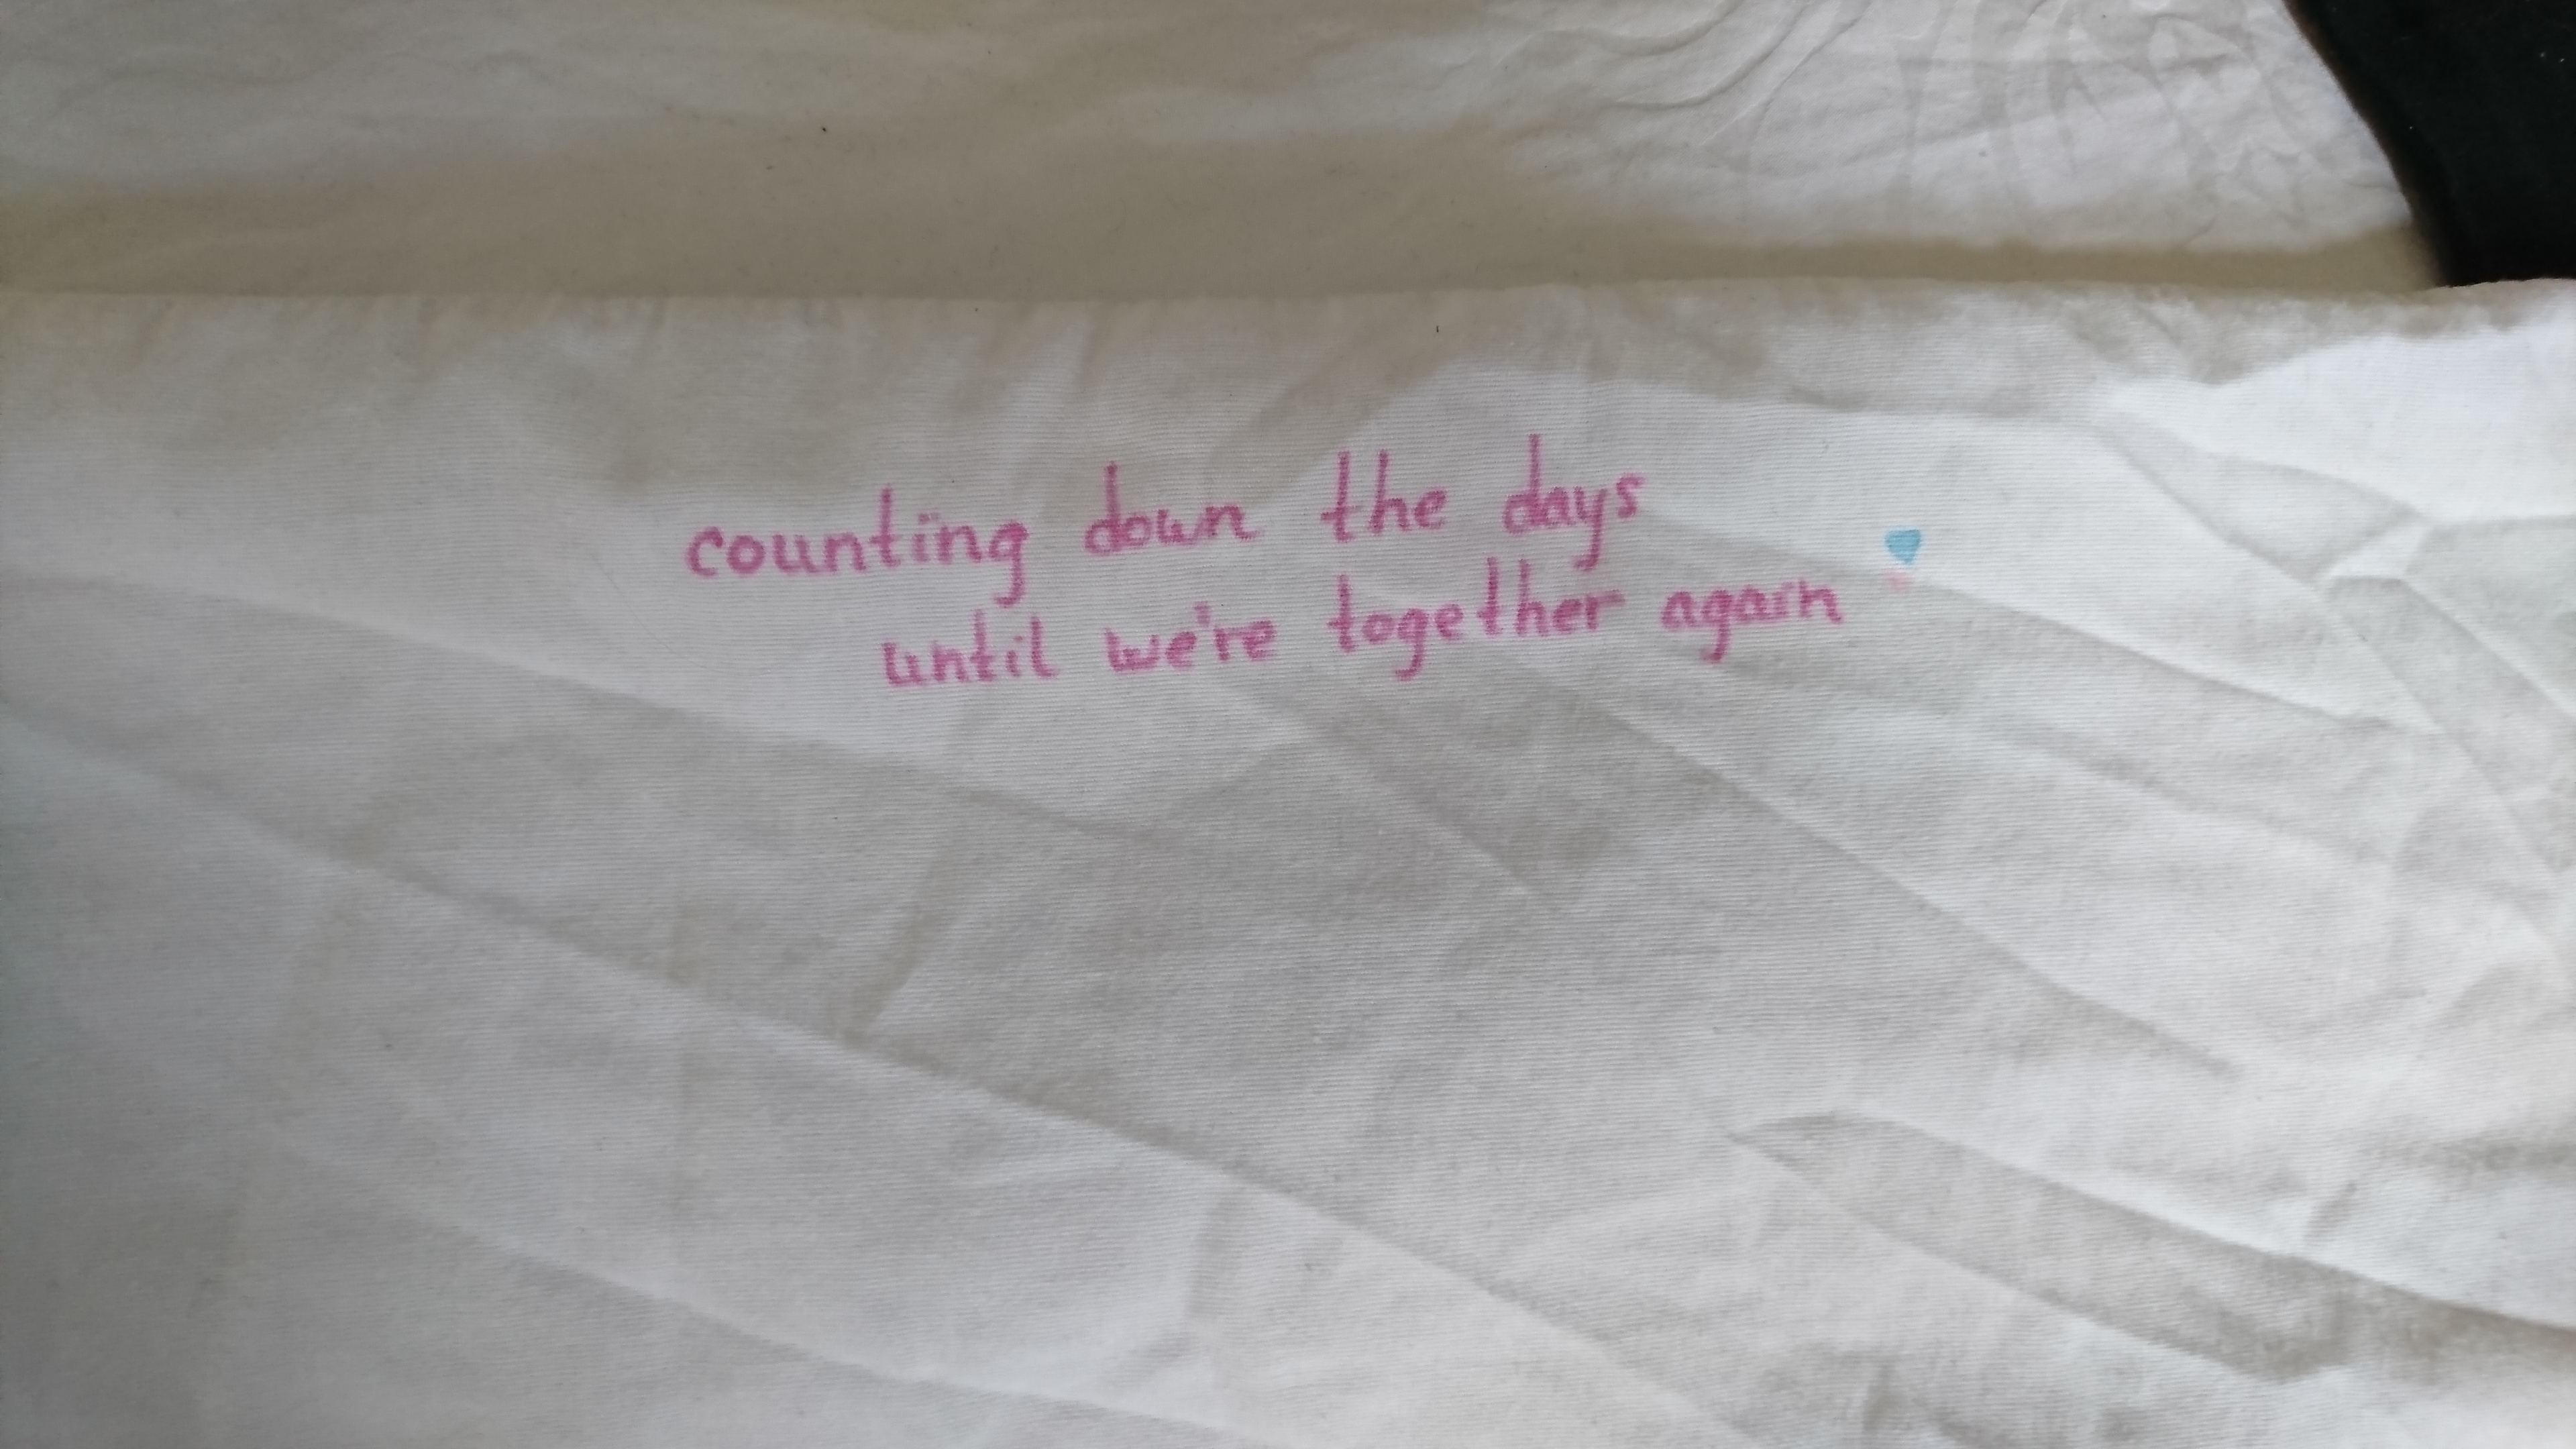 counting down the days
until we're together again